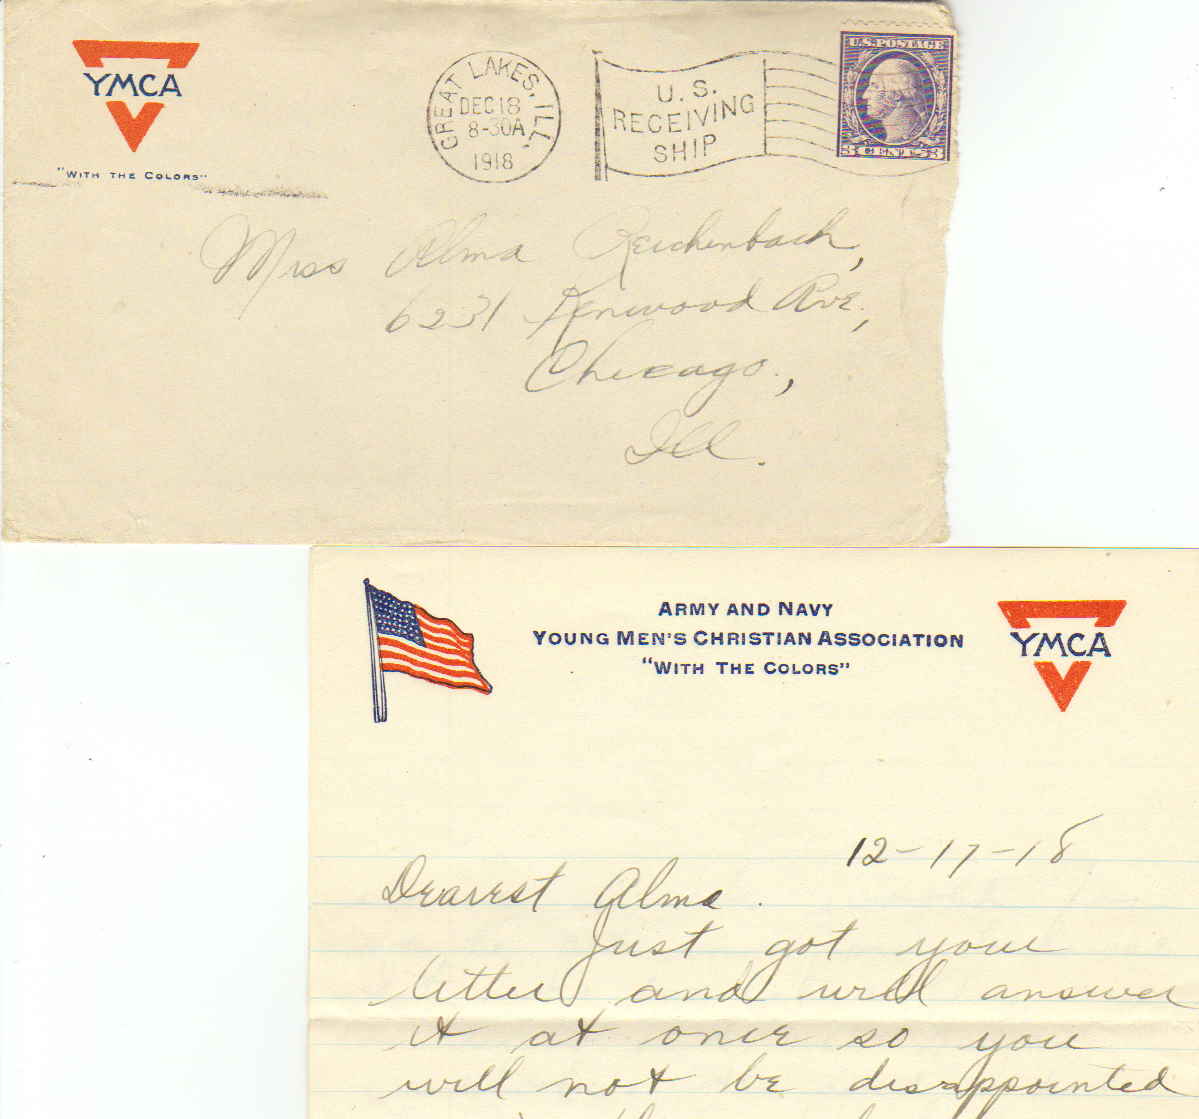 YMCA
"WITH THE COLORS"
GREAT LAKES, ILL.
DEC 18
8-30A
1918
U. S.
RECEIVING
SHIP
U.S. POSTAGE
3 CENTS 3
Miss Alma Reichenbach,
6231 Kenwood Ave.,
Chicago,
Ill.
ARMY AND NAVY
YOUNG MEN'S CHRISTIAN ASSOCIATION
"WITH THE COLORS"
YMCA
12-17-18
Dearest Alma.
Just got your
letter and will answer
it at once so you
will not be disappointed